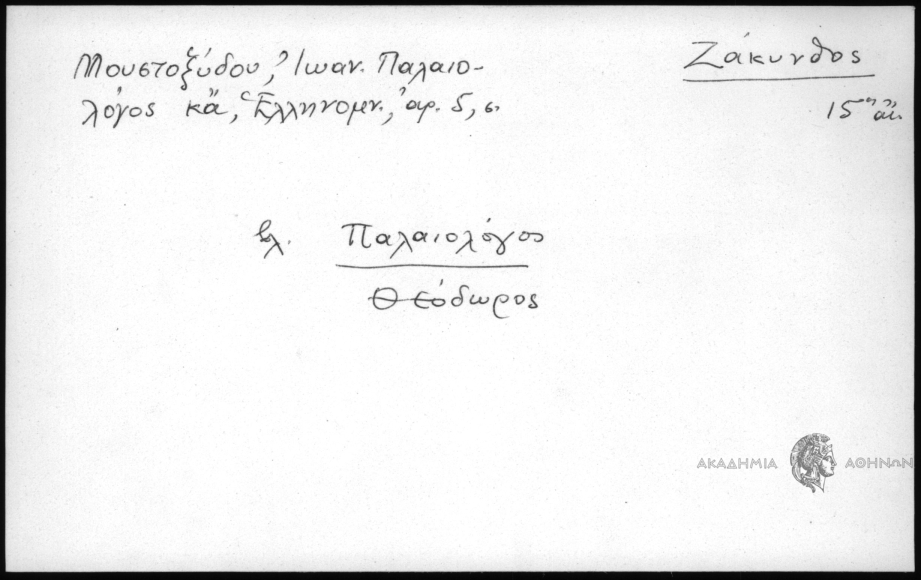 Μουστοξύδου, Ἰωαν. Παλαιο-
λόγος κἄ, Ἑλληνομν., ἀρ. 5, σ.
Ζάκυνθος
15 αἰ.
βλ. Παλαιολόγος
Θεόδωρος
ΑΚΑΔΗΜΙΑ ΑΘΗΝΩΝ